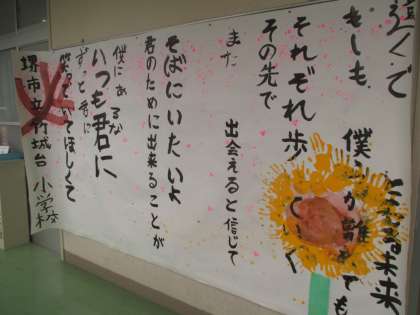 遠くで ともる未来
もしも 僕らが離れても
それぞれ歩いていく
その先で
また 出会えると信じて
そばにいたいよ
君のために出来ることが
僕にあるかな
いつも君に
ずっと君に
笑っていてほしくて
堺市立竹城台 小学校